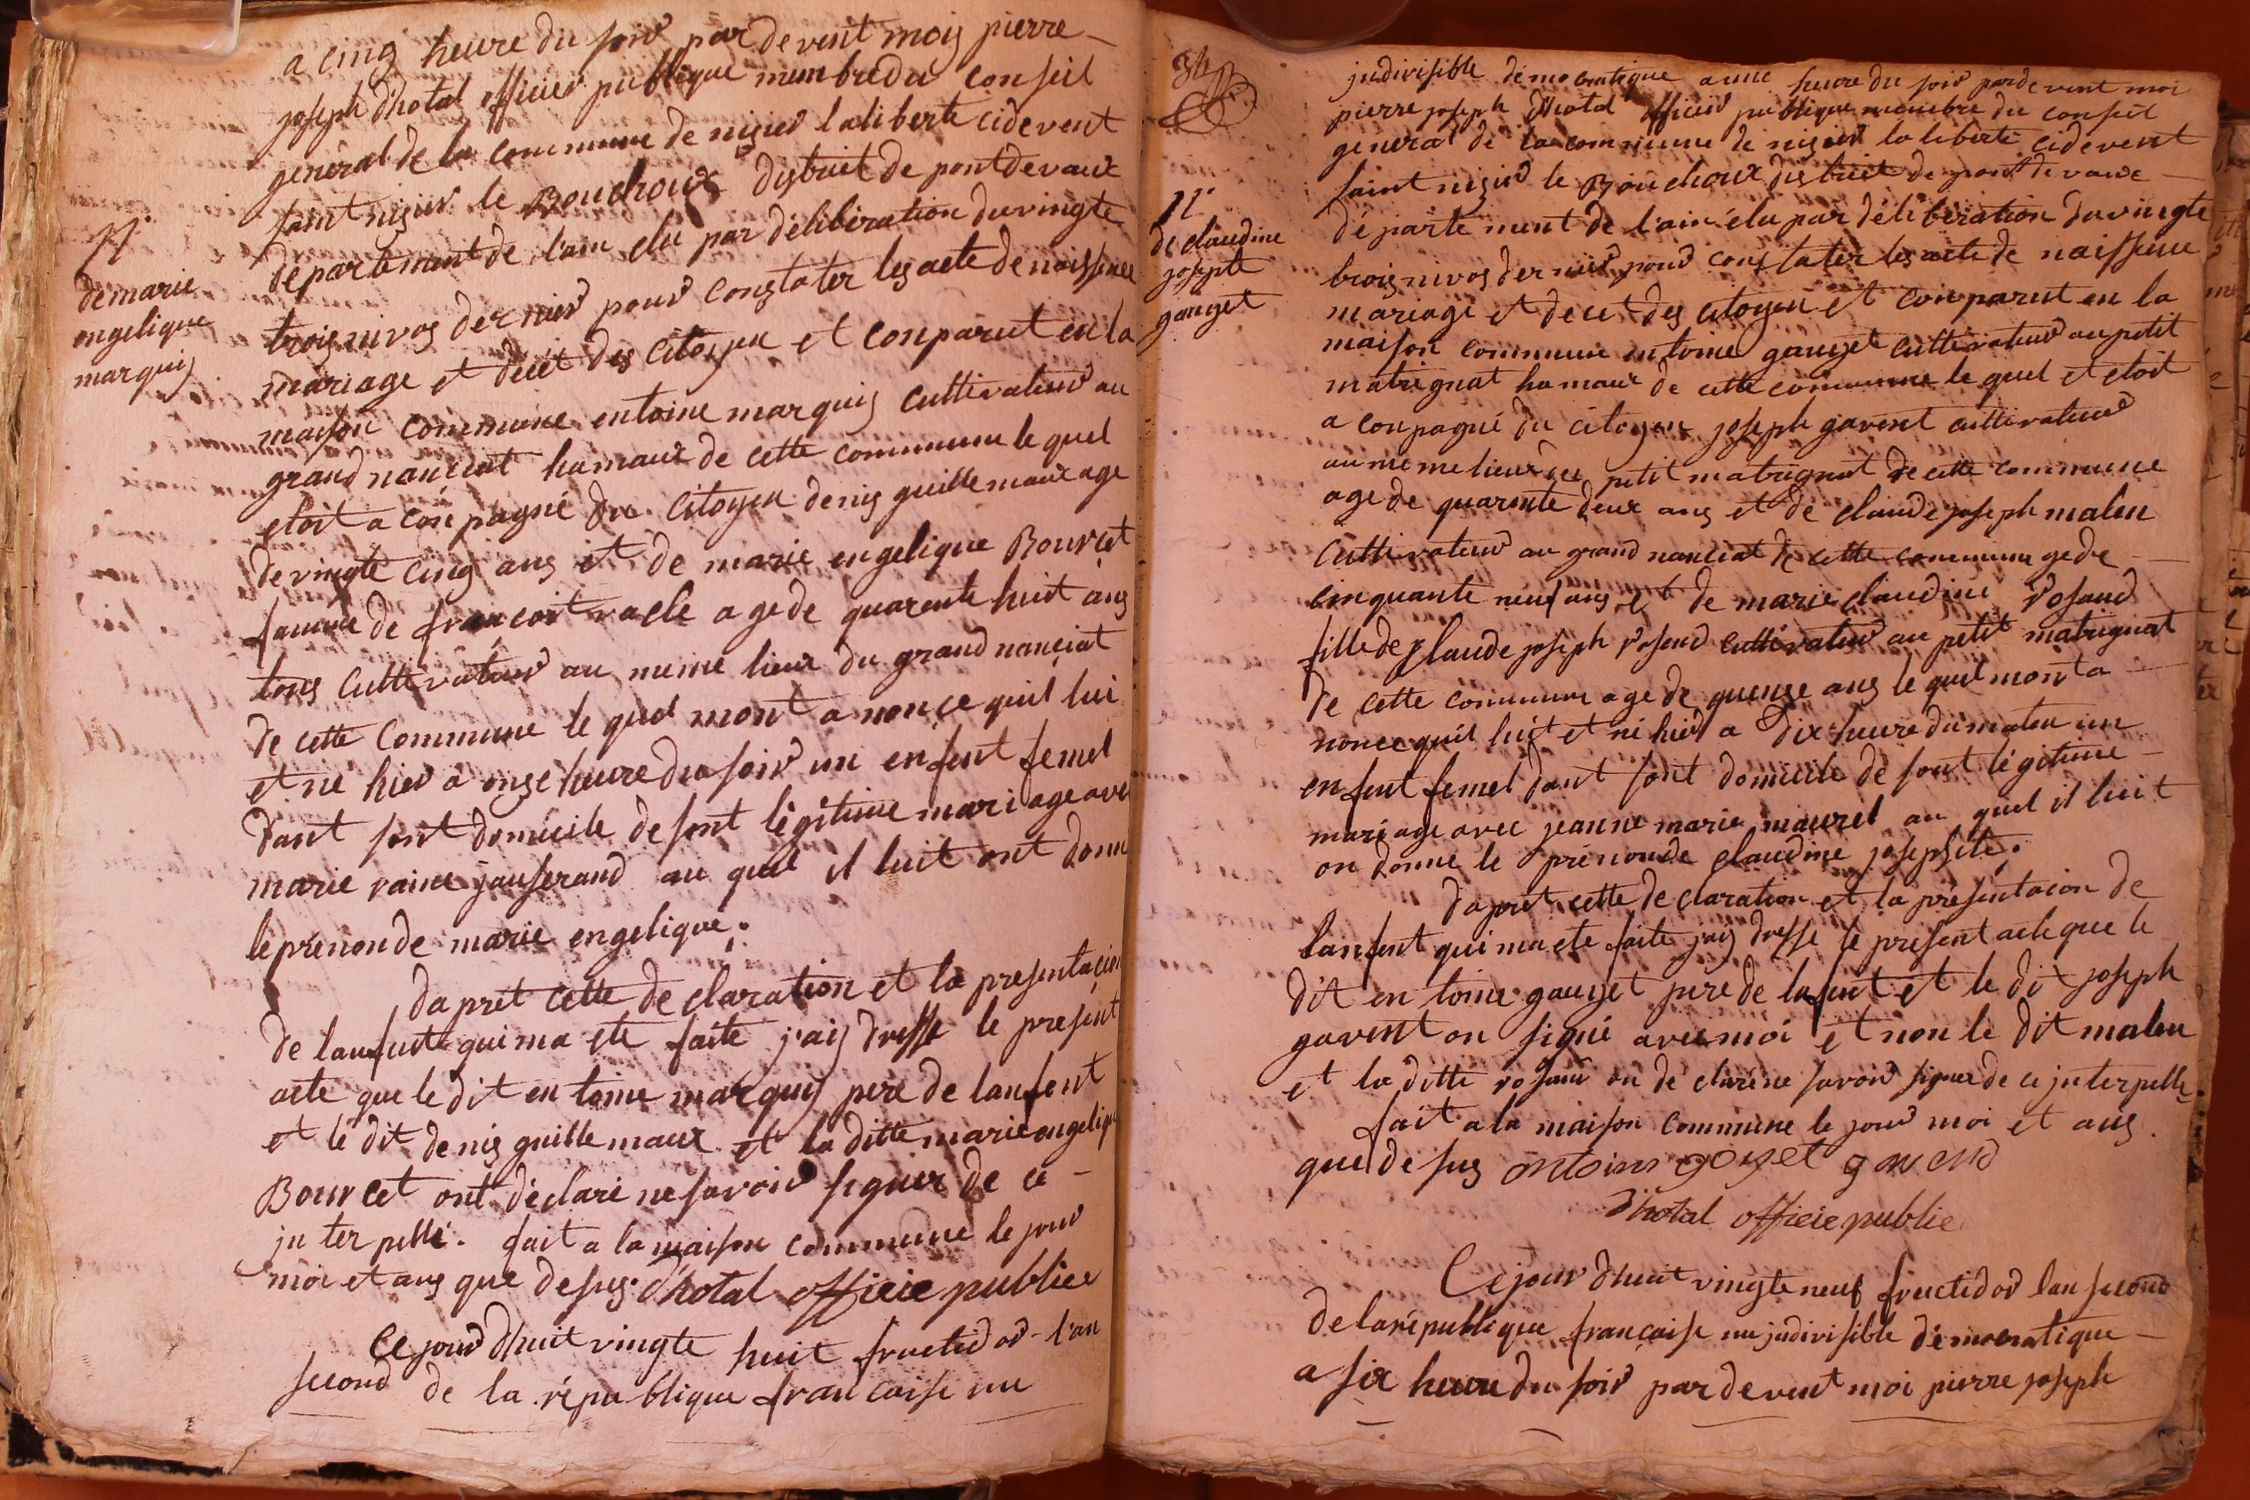 a cinq heure du soir par devent mois pierre
joseph d'hotal officier publique membre du conseil
general de la commune de nisier la liberte cidevent
saint nisier le Bouchoux distriet de pont de vaux
departement de l'ain elu par déliberation du vingte
trois nivos dernier pour constater les acte de naissence
mariage et decet des citoyen et conparut en la
maison commune entoine marquis cultivateur au
grand nanciat hamaux de cette commune le quel
etoit a conpagné du citoyen denis guille maux age
de vingte cinq ans et de marie engelique Bourcet
famme de francoit racle age de quarente huit ans
tous cultivateur au meme lieux du grand nanciat
de cette commune le quel mont a nonce quil lui
et né hier a onze heure du soir un enfent femel
dant sont domicile de sont légitime mariage avec
marie raine jauserand au quel il luit ont donne
le prénon de marie engelique.
dapret cette declaration et la presentacion
de lanfent qui ma ete faite j'ais dresse le present
acte que le dit entoine marquis pere de lanfent
et le dit denis guille maux et la ditte marie engelique
Bourcet ont déclaré ne savoir signer de ce
jnterpellé. fait a la maison commune le jour
moi et ans que desus. d'hotal officie publice
Ce jour dhuit vingte huit fructidor l'an
second de la république francaise une
N.
de marie
engelique
marquis
jndivisible démocratique a une heure du soir pardevent moi
pierre joseph d'hotal officier publique membre du conseil
general de la commune de nisier la liberté cidevent
saint nisier le Bouchoux distriet de pont de vaux
département de l'ain élu par déliberation du vingte
trois nivos dernier pour constater les acte de naissence
mariage et decet des citoyen et conparut en la
maison commune entoine gauzet cultivateur au petit
matrignat hamaux de cette commune le quel et etoit
a conpagné du citoyen joseph gavent cultivateur
au meme lieux du petit matrignat de cette commune
age de quarente deux ans et de claude joseph malin
cultivateur au grand nanciat de cette commune age de
cinquante neuf ans et de marie claudine rosand
fille de claude joseph rosand cultivateur au petit matrignat
de cette commune age de quense ans le quel mont a
nonce quil luit et né hier a dix heure du matin un
enfent femel dant sont domicile de sont légitime
mariage avec jeanne marie maurel au quel il luit
on donne le prénon de claudine josephte.
dapret cette declaration et la présentacion de
lanfent qui ma ete faite jais dresse le present acte que le
dit entoine gauzet pere de lafent et le dit joseph
gavent on signé avec moi et non le dit malin
et la ditte rosand on déclaré ne savoir signer de ce jnterpelle
fait a la maison commune le jour moi et ans
que de sus antoine gozet gavend
d'hotal officie publice
Ce jour dhuit vingte neuf fructidor lan second
de la république francaise une jndivisible démocratique
a six heure du soir par devent moi pierre joseph
N.
de claudine
josephte
gauzet